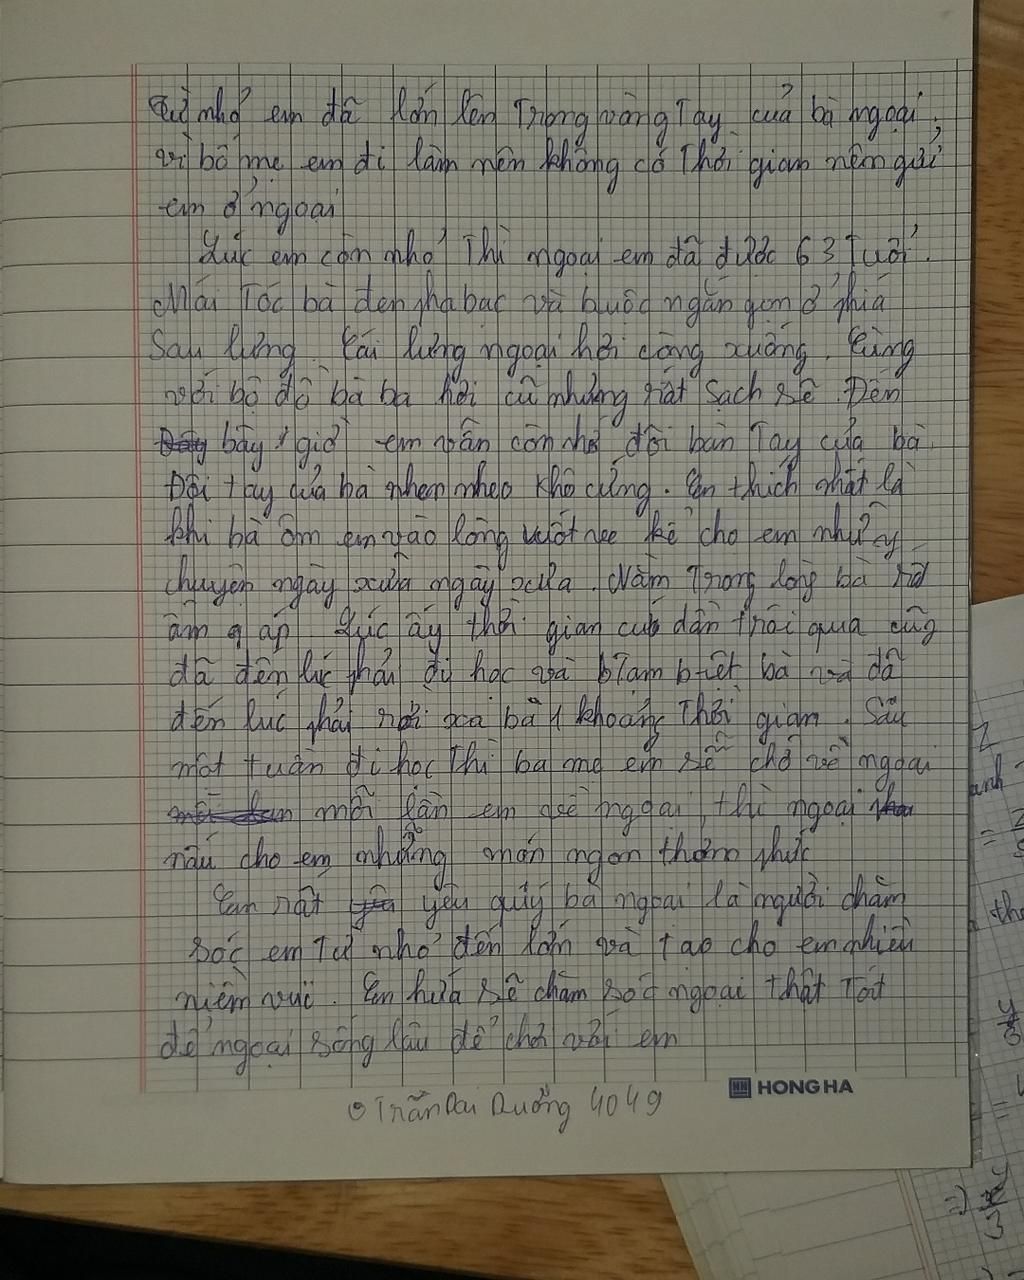 Từ nhỏ em đã lớn lên Trong vòng Tay của bà ngoại.
vì bố mẹ em đi làm nên không có Thời gian nên gửi
em ở ngoại
Lúc em còn nhỏ Thì ngoại em đã được 63 Tuổi.
Mái Tóc bà đen pha bạc và buộc ngắn gọn ở phiá
Sau lưng. Cái lưng ngoại hơi còng xuống. Cùng
với bộ đồ bà ba hơi cũ nhưng rất sạch sẽ. Đến
bây giờ em vẫn còn nhớ đôi bàn Tay của bà.
Đôi tay của bà nhen nheo khô cứng. Em thích nhất là
khi bà ôm em vào lòng vuốt ve kể cho em những
chuyện ngày xửa ngày xưa. Nằm Trong lòng bà rất
ấm áp. Lúc ấy thời gian cứ dần trôi qua cũng
đã đến lúc phải đi học và Tạm biệt bà và đã
đến lúc phải rời xa bà 1 khoảng Thời gian. Sau
một tuần đi học Thì ba mẹ em sẽ chở về ngoại
mỗi lần em về ngoại, thì ngoại
nấu cho em những món ngon thơm phức
Em rất yêu quý bà ngoại là người chăm
sóc em Từ nhỏ đến lớn và tạo cho em nhiều
niềm vui. Em hứa sẽ chăm sóc ngoại thật Tốt
để ngoại sống lâu để chơi với em
HONG HA
Trần Đại Dưỡng 4049